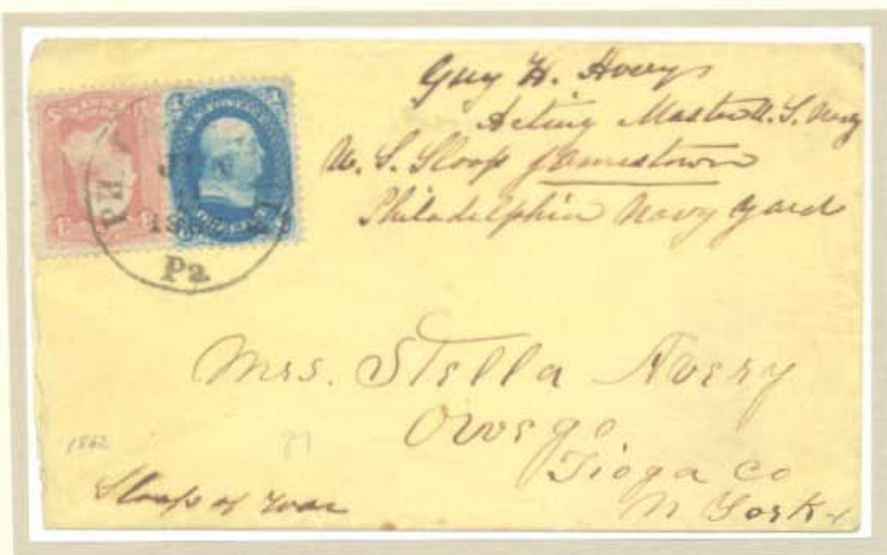 Guy H. Avery
Acting Master U. S. Navy
U. S. Sloop Jamestown
Philadelphia Navy Yard
1862
Pa.
Mrs. Stella Avery
Owego
Tioga Co
N York
1862
Sloop of war